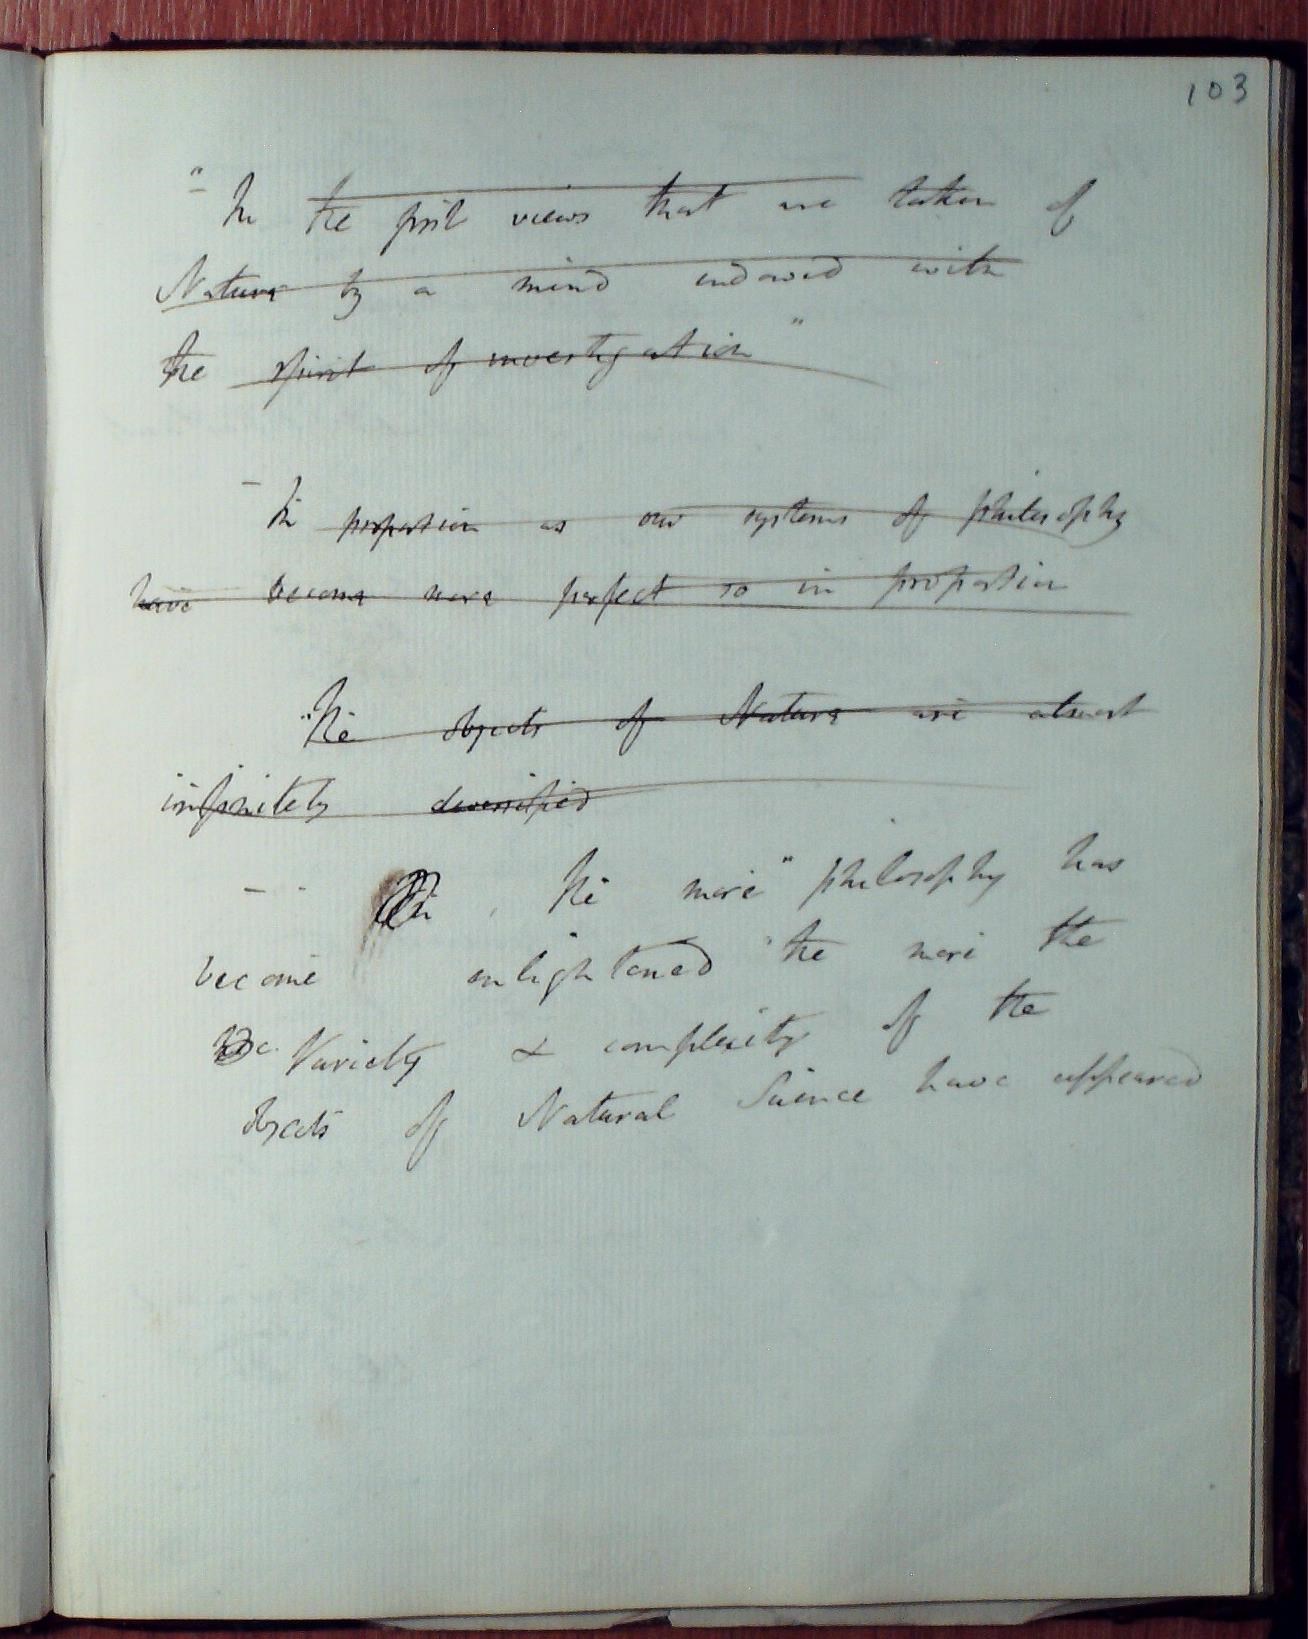 103
"- In the first views that are taken of
Nature by a mind endowed with
the spirit of investigation"
- In proportion as our systems of philosophy
have become more perfect so in proportion
"The objects of Nature are almost
infinitely diversified
- The more" philosophy has
become enlightened "the more the
Variety & complexity of the
objects of Natural Science have appeared